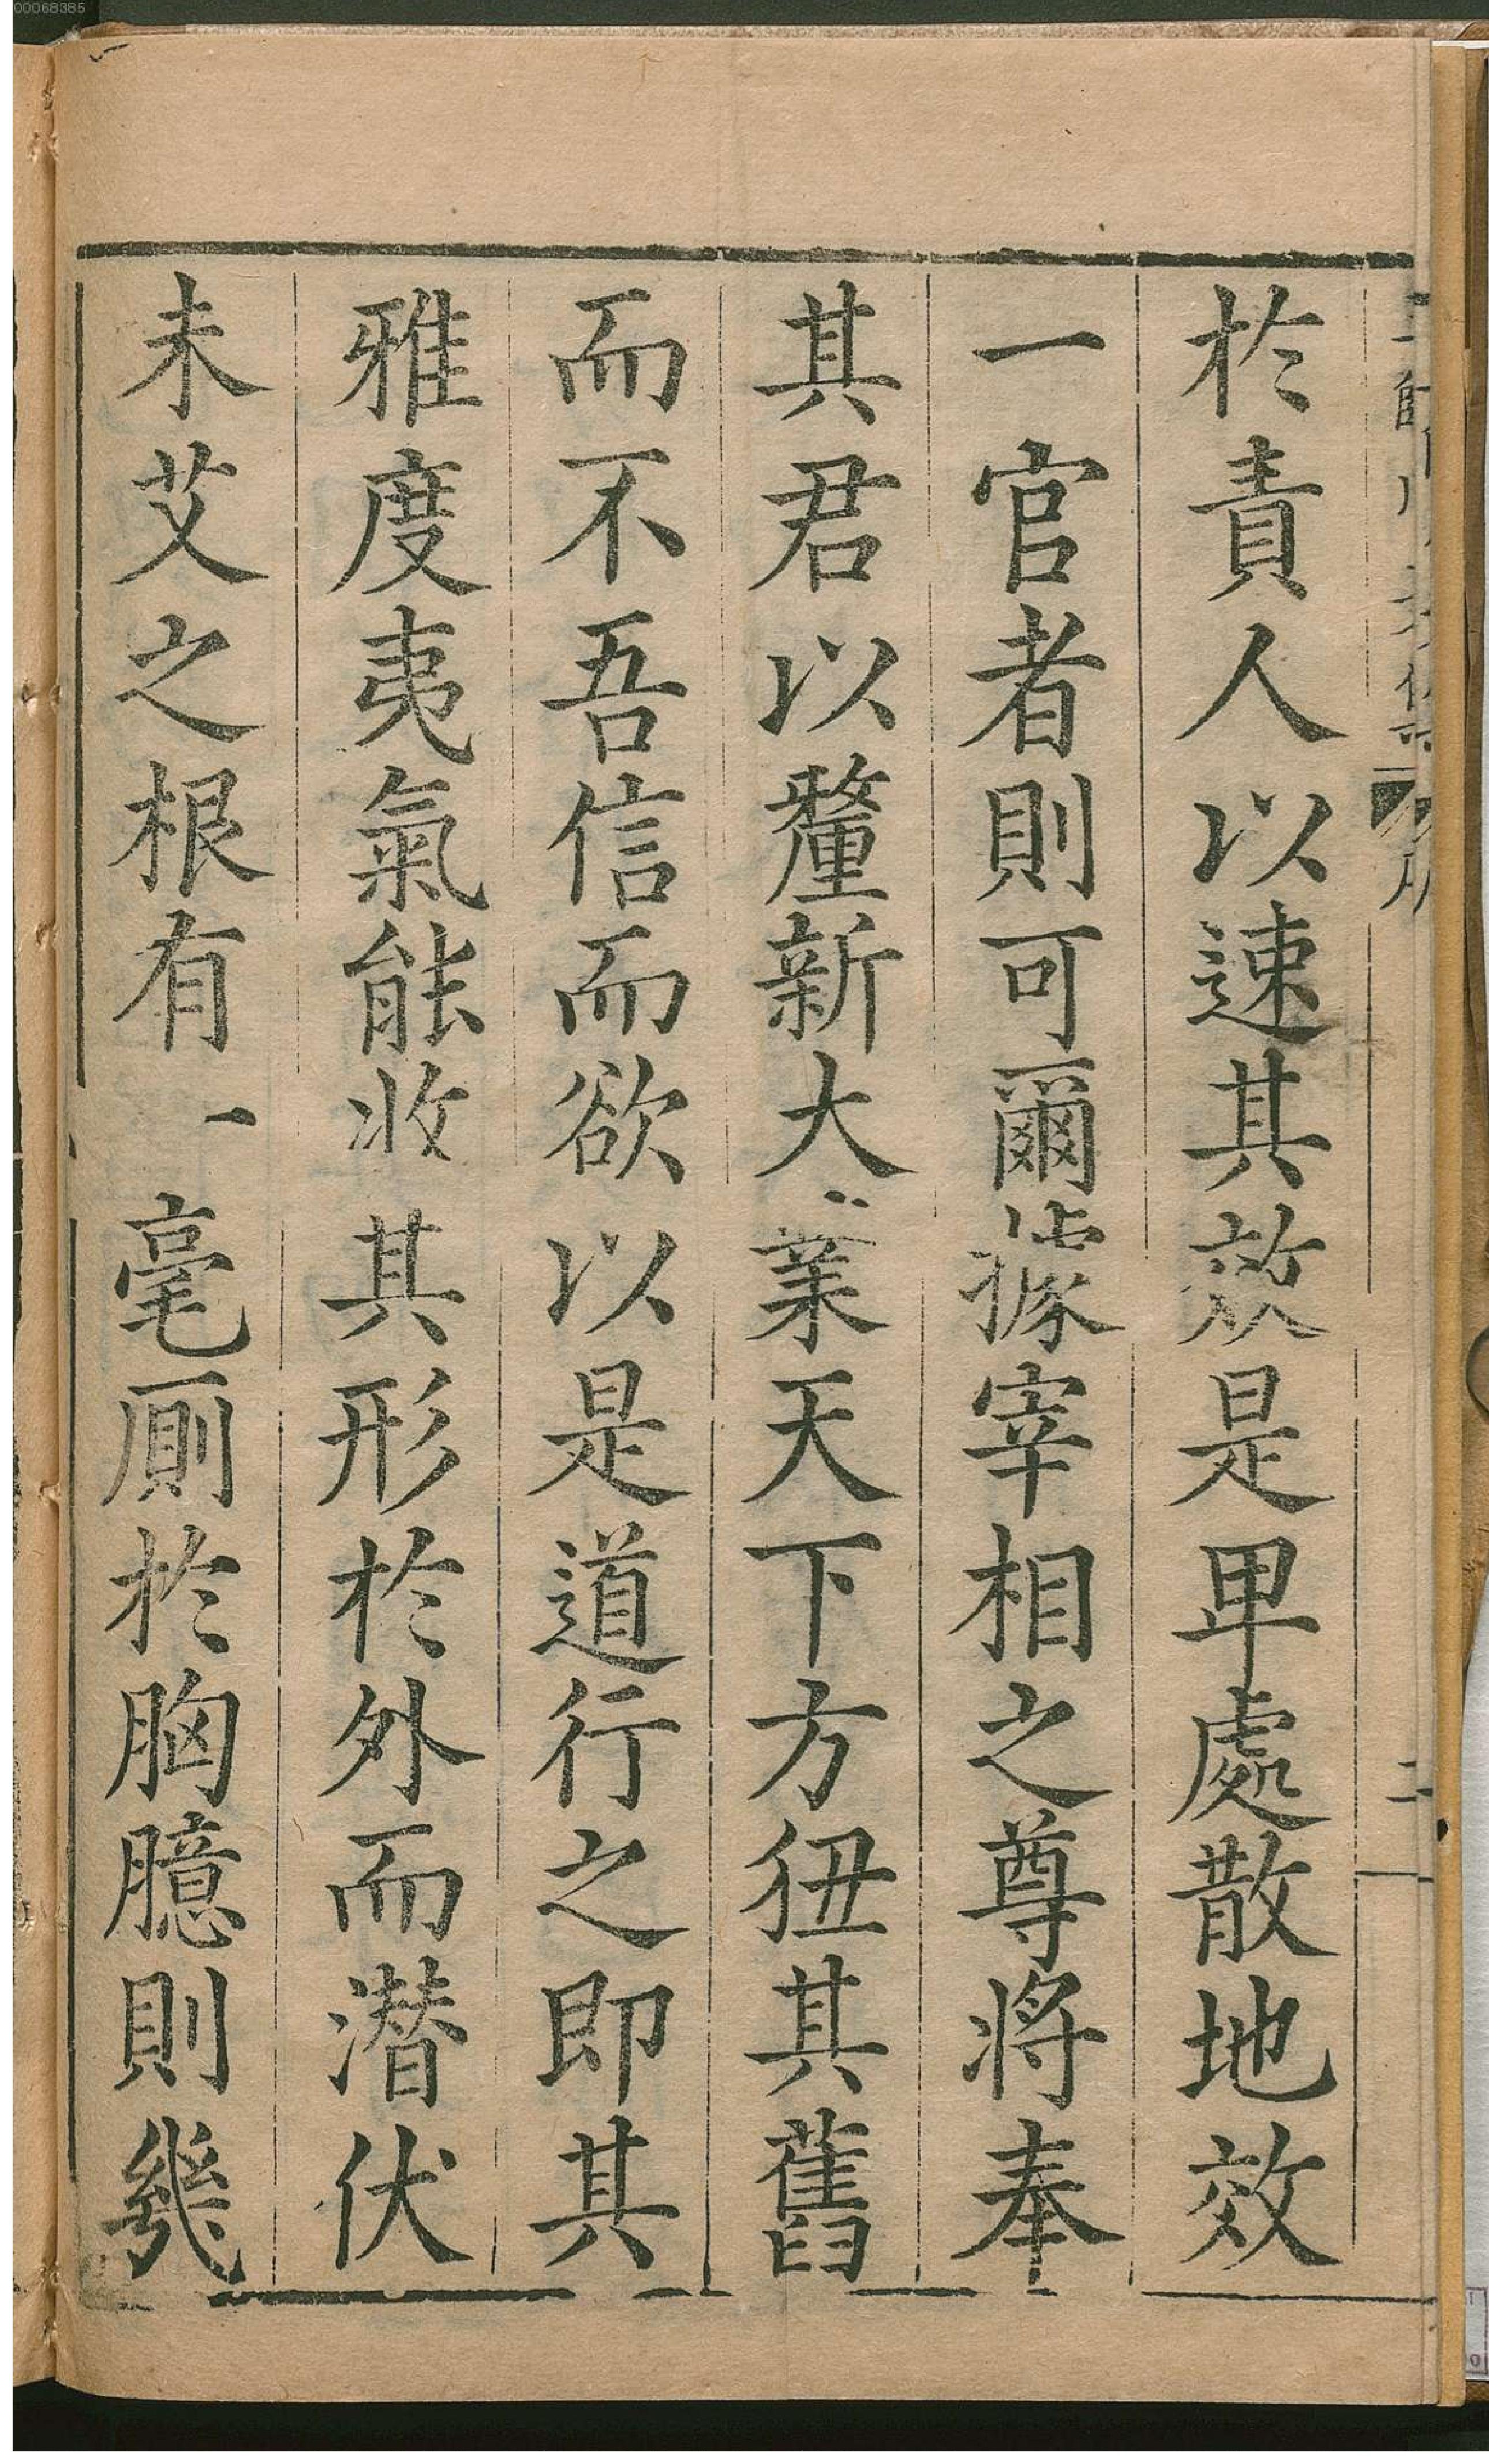 00068385
於責人以速其效是卑處散地效
一官者則可爾據宰相之尊將奉
其君以釐新大業天下方狃其舊
而不吾信而欲以是道行之即其
雅度夷氣能收其形於外而潜伏
未艾之根有一毫厠於胸臆則幾
二